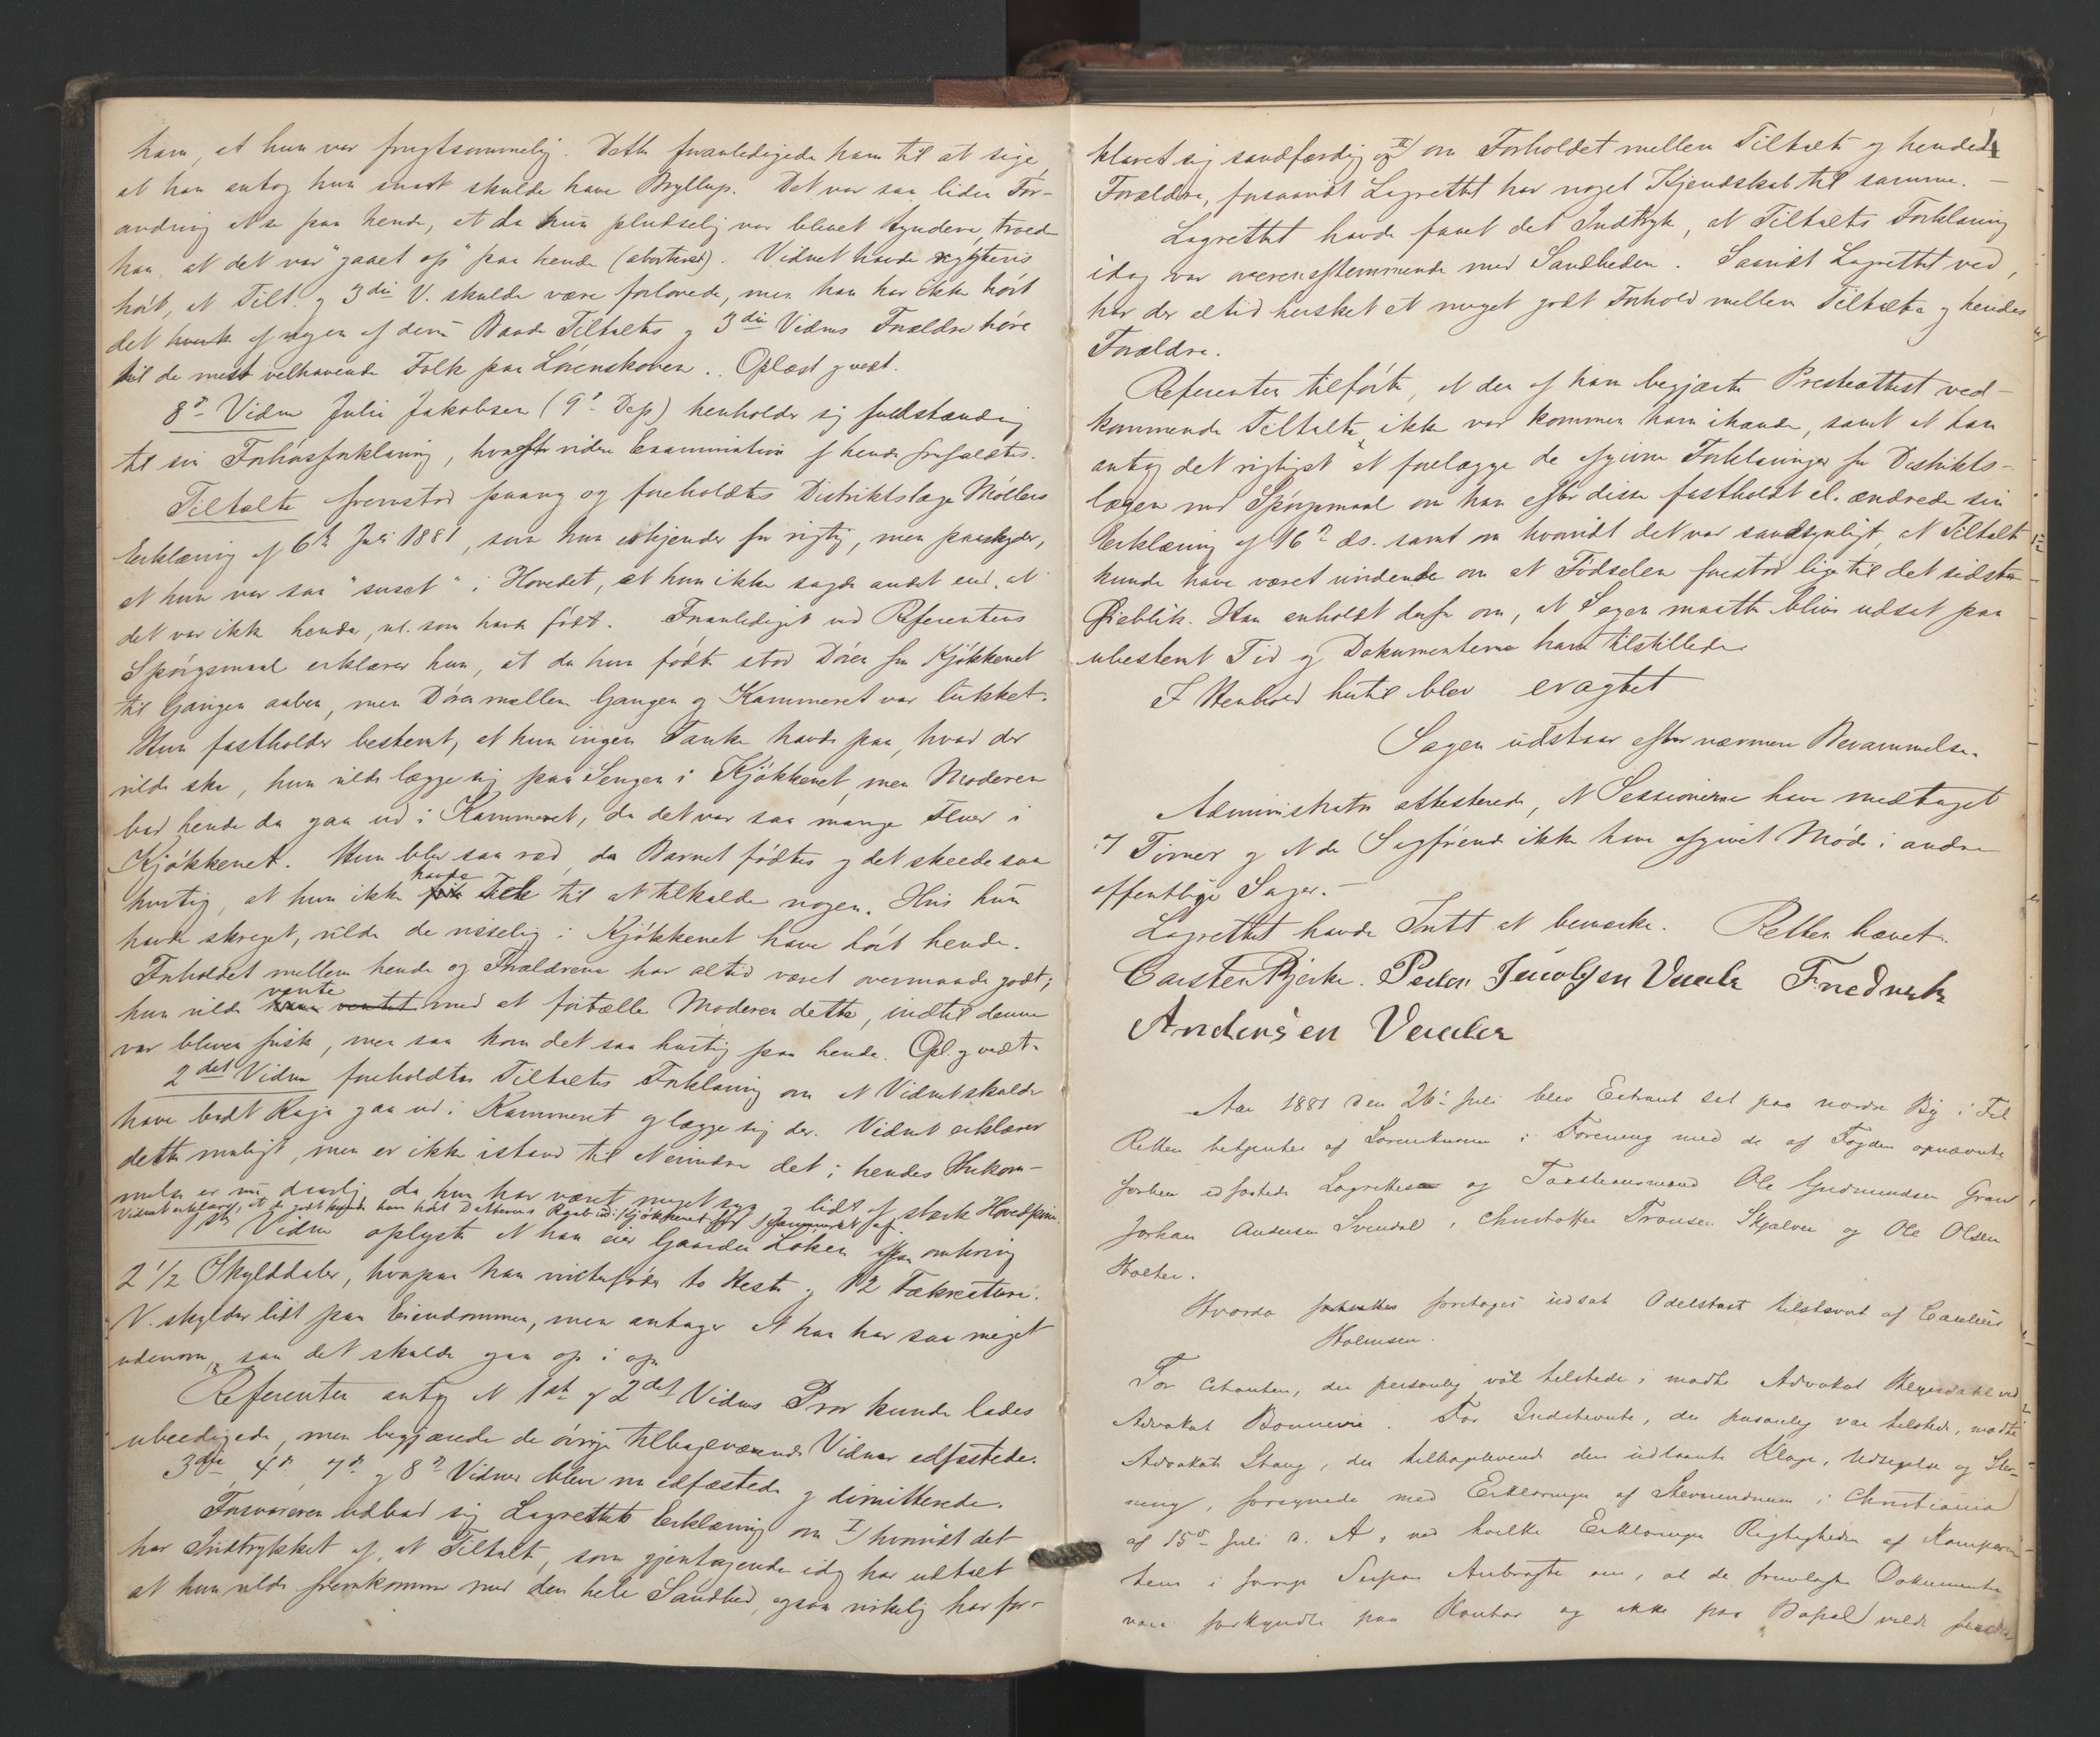 ham, at hun var frugtsommelig. Dette foranledigede ham til at sige
at han antog hun snart skulde have Bryllup. Det var saa liden For-
andring at se paa hende, at da hun pludselig var blevet tyndere, troede
han, at det var "gaaet op" paa hende (aborteret). Vidnet havde rygtevis
hørt, at Tilt. og 3die V. skulde være forlovede, men han har ikke hørt
det af nogen af dem. Baade Tiltaltes og 3die Vidnes Forældre høre
til de mest velhavende Folk paa Lørenskoven. Oplæst og vedt.
8de Vidne Julie Jakobsen (9de Dep) henholder sig fuldstændig
til sin Forhørsforklaring, hvorfor videre Examination af hende frafaldtes.
Tiltalte fremstod paany og foreholdtes Distriktslæge Møllers
Erklæring af 6te Juli 1881, som hun erkjender for rigtig, men paaskyder,
at hun var saa "suset" i Hovedet, at hun ikke sagde andet end at
det var ikke hende, nl. som havde født. Foranlediget ved Referentens
Spørgsmaal erklærer hun, at da hun fødte stod Døren fra Kjøkkenet
til Gangen aaben, men Døren mellem Gangen og Kammeret var lukket.
Hun fastholder bestemt, at hun ingen Tanke havde paa, hvad der
vilde ske, hun vilde lægge sig paa Sengen i Kjøkkenet, men Moderen
bad hende da gaa ud i Kammeret, da det var saa mange Fluer i
Kjøkkenet. Hun blev saa ræd, da Barnet fødtes og det skeede saa
hurtig, at hun ikke havde Tid til at tilkalde nogen. Hvis hun
havde skreget, vilde de visselig i Kjøkkenet have hørt hende.
Forholdet mellem hende og Forældrene har altid været overmaade godt;
hun vilde vente med at fortælle Moderen dette, indtil denne
var bleven frisk, men saa kom det saa hurtig paa hende. Opl. og vedt.
2det Vidne foreholdtes Tiltaltes Forklaring om at Vidnet skulde
have bedt Kaja gaa ud i Kammeret og lægge sig der. Vidnet erklærer
dette muligt, men er ikke istand til at erindre det; hendes Hukom-
melse er nu daarlig, da hun har været meget syg og lidt af stærk Hovedpine.
Vidnet erklærer, at godt kunde have hørt Datterens Raab ud i Kjøkkenet
1ste Vidne oplyste at han eier Gaarden Løken af Skyld omkring
2 1/2 Skylddaler, hvorpaa han vinterføder to Heste og 12 Fækreature.
V. skylder lidt paa Eiendommen, men antager at han har saa meget
udenom, saa det skulde gaa op i op.
Referenten antog at 1ste og 2det Vidnes Prov kunde lades
ubeedigede, men begjærede de øvrige tilbageværende Vidner edfæstede.
3die, 4de, 7de og 8de Vidner bleve nu edfæstede og dimitterede.
Forsvareren udbad sig Lagrettets Erklæring om I) hvorvidt det
har Indtrykket af, at Tiltalte, som gjentagende idag har udtalt
at hun vilde fremkomme med den hele Sandhed, ogsaa virkelig har for-
4
klaret sig sandfærdig og II) om Forholdet mellem Tiltalte og hendes
Forældre, forsaavidt Lagrettet har noget Kjendskab til samme.
Lagrettet havde faaet det Indtryk, at Tiltaltes Forklaring
idag var overensstemmende med Sandheden. Saavidt Lagrettet ved,
har der altid hersket et meget godt Forhold mellem Tiltalte og hendes
Forældre.
Referenten tilførte, at den af ham begjærte Presteattest ved-
kommende Tiltalte ikke var kommen ham ihænde, samt at han
antog det rigtigst at forelægge de afgivne Forklaringer for Distrikts-
lægen med Spørgsmaal om han efter disse fastholdt el. ændrede sin
Erklæring af 16de ds. samt om hvorvidt det var sandsynligt, at Tiltalte
kunde have været uvidende om at Fødselen forestod lige til det sidste
Øieblik. Han anholdt derfor om, at Sagen maatte blive udsat paa
ubestemt Tid og Dokumenterne ham tilstillede.
I Henhold hertil blev eragtet
Sagen udstaar efter nærmere Berammelse.
Administrator attesterede, at Sessionerne have medtaget
7 Timer og at de Sagførende ikke have afgivet Møde i andre
offentlige Sager.
Lagrettet havde Intet at bemærke. Retten hævet.
Carsten Bjerke. Peder Jacobsen Fredrik
Andersen
Aar 1881 den 26de Juli blev Extraret sat paa nordre By i
Retten betjentes af Sorenskriveren i Forening med de af Fogden opnævnte
forhen edfæstede Lagrettes og Taxtationsmænd Ole Gudmundsen Gran,
Johan Andersen Svendal, Christoffer Tronsen Skjælver og Ole Olsen
Holter.
Hvorda foretoges udsat Odelstaxt tilstævnt af
Holmsen.
For Citanten, der personlig var tilstede, mødte Advokat ved
Advokat Bonnevie. For Indstevnte, der personlig var tilstede, mødte
Advokat Stang, der tilbageleverede den udlaante Klage, Udsigelse og Stev-
ning, forsynede med Erklæringer af Stevnevidnerne i Christiania
af 15de Juli d. A., ved hvilke Erklæringer Rigtigheden af Komparen-
tens i forrige Session Anbragte om, at de fremlagte Dokumenter
vare forkyndte paa Kontor og ikke paa Bopæl vilde